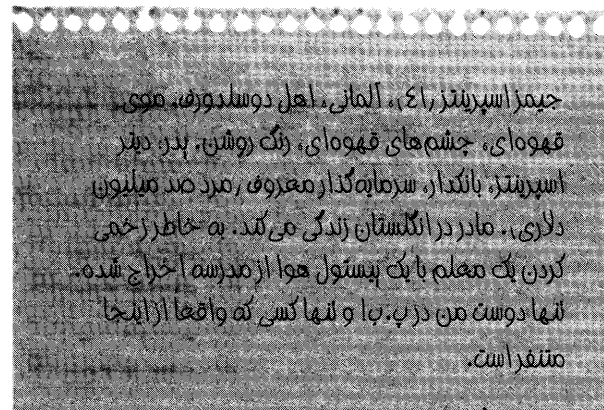 جیمز اسپرینتز (١٤)، آلمانی، اهل دوسلدورف، موی
قهوه‌ای، چشم‌های قهوه‌ای، رنگ روشن. پدر، دیتر
اسپرینتز، بانکدار، سرمایه‌گذار معروف (مرد صد میلیون
دلاری). مادر در انگلستان زندگی می‌کند. به خاطر زخمی
کردن یک معلم با یک پیستول هوا از مدرسه اخراج شده.
تنها دوست من در پ.ب! و تنها کسی که واقعا از اینجا
متنفر است.